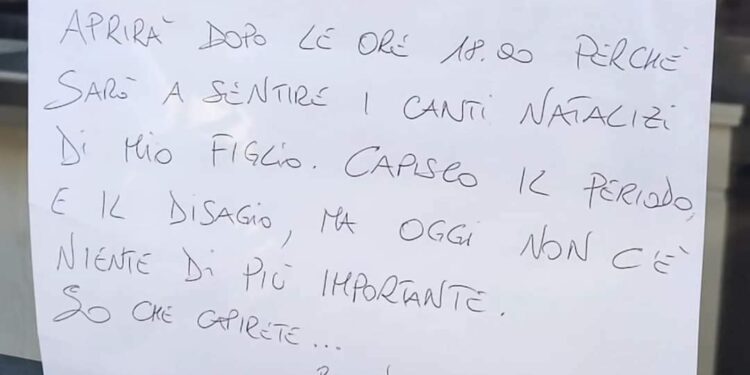 APRIRÀ DOPO LE ORE 18.00 PERCHÈ
SARÒ A SENTIRE I CANTI NATALIZI
DI MIO FIGLIO. CAPISCO IL PERIODO,
E IL DISAGIO, MA OGGI NON C'È
NIENTE DI PIÙ IMPORTANTE.
SO CHE CAPIRETE...